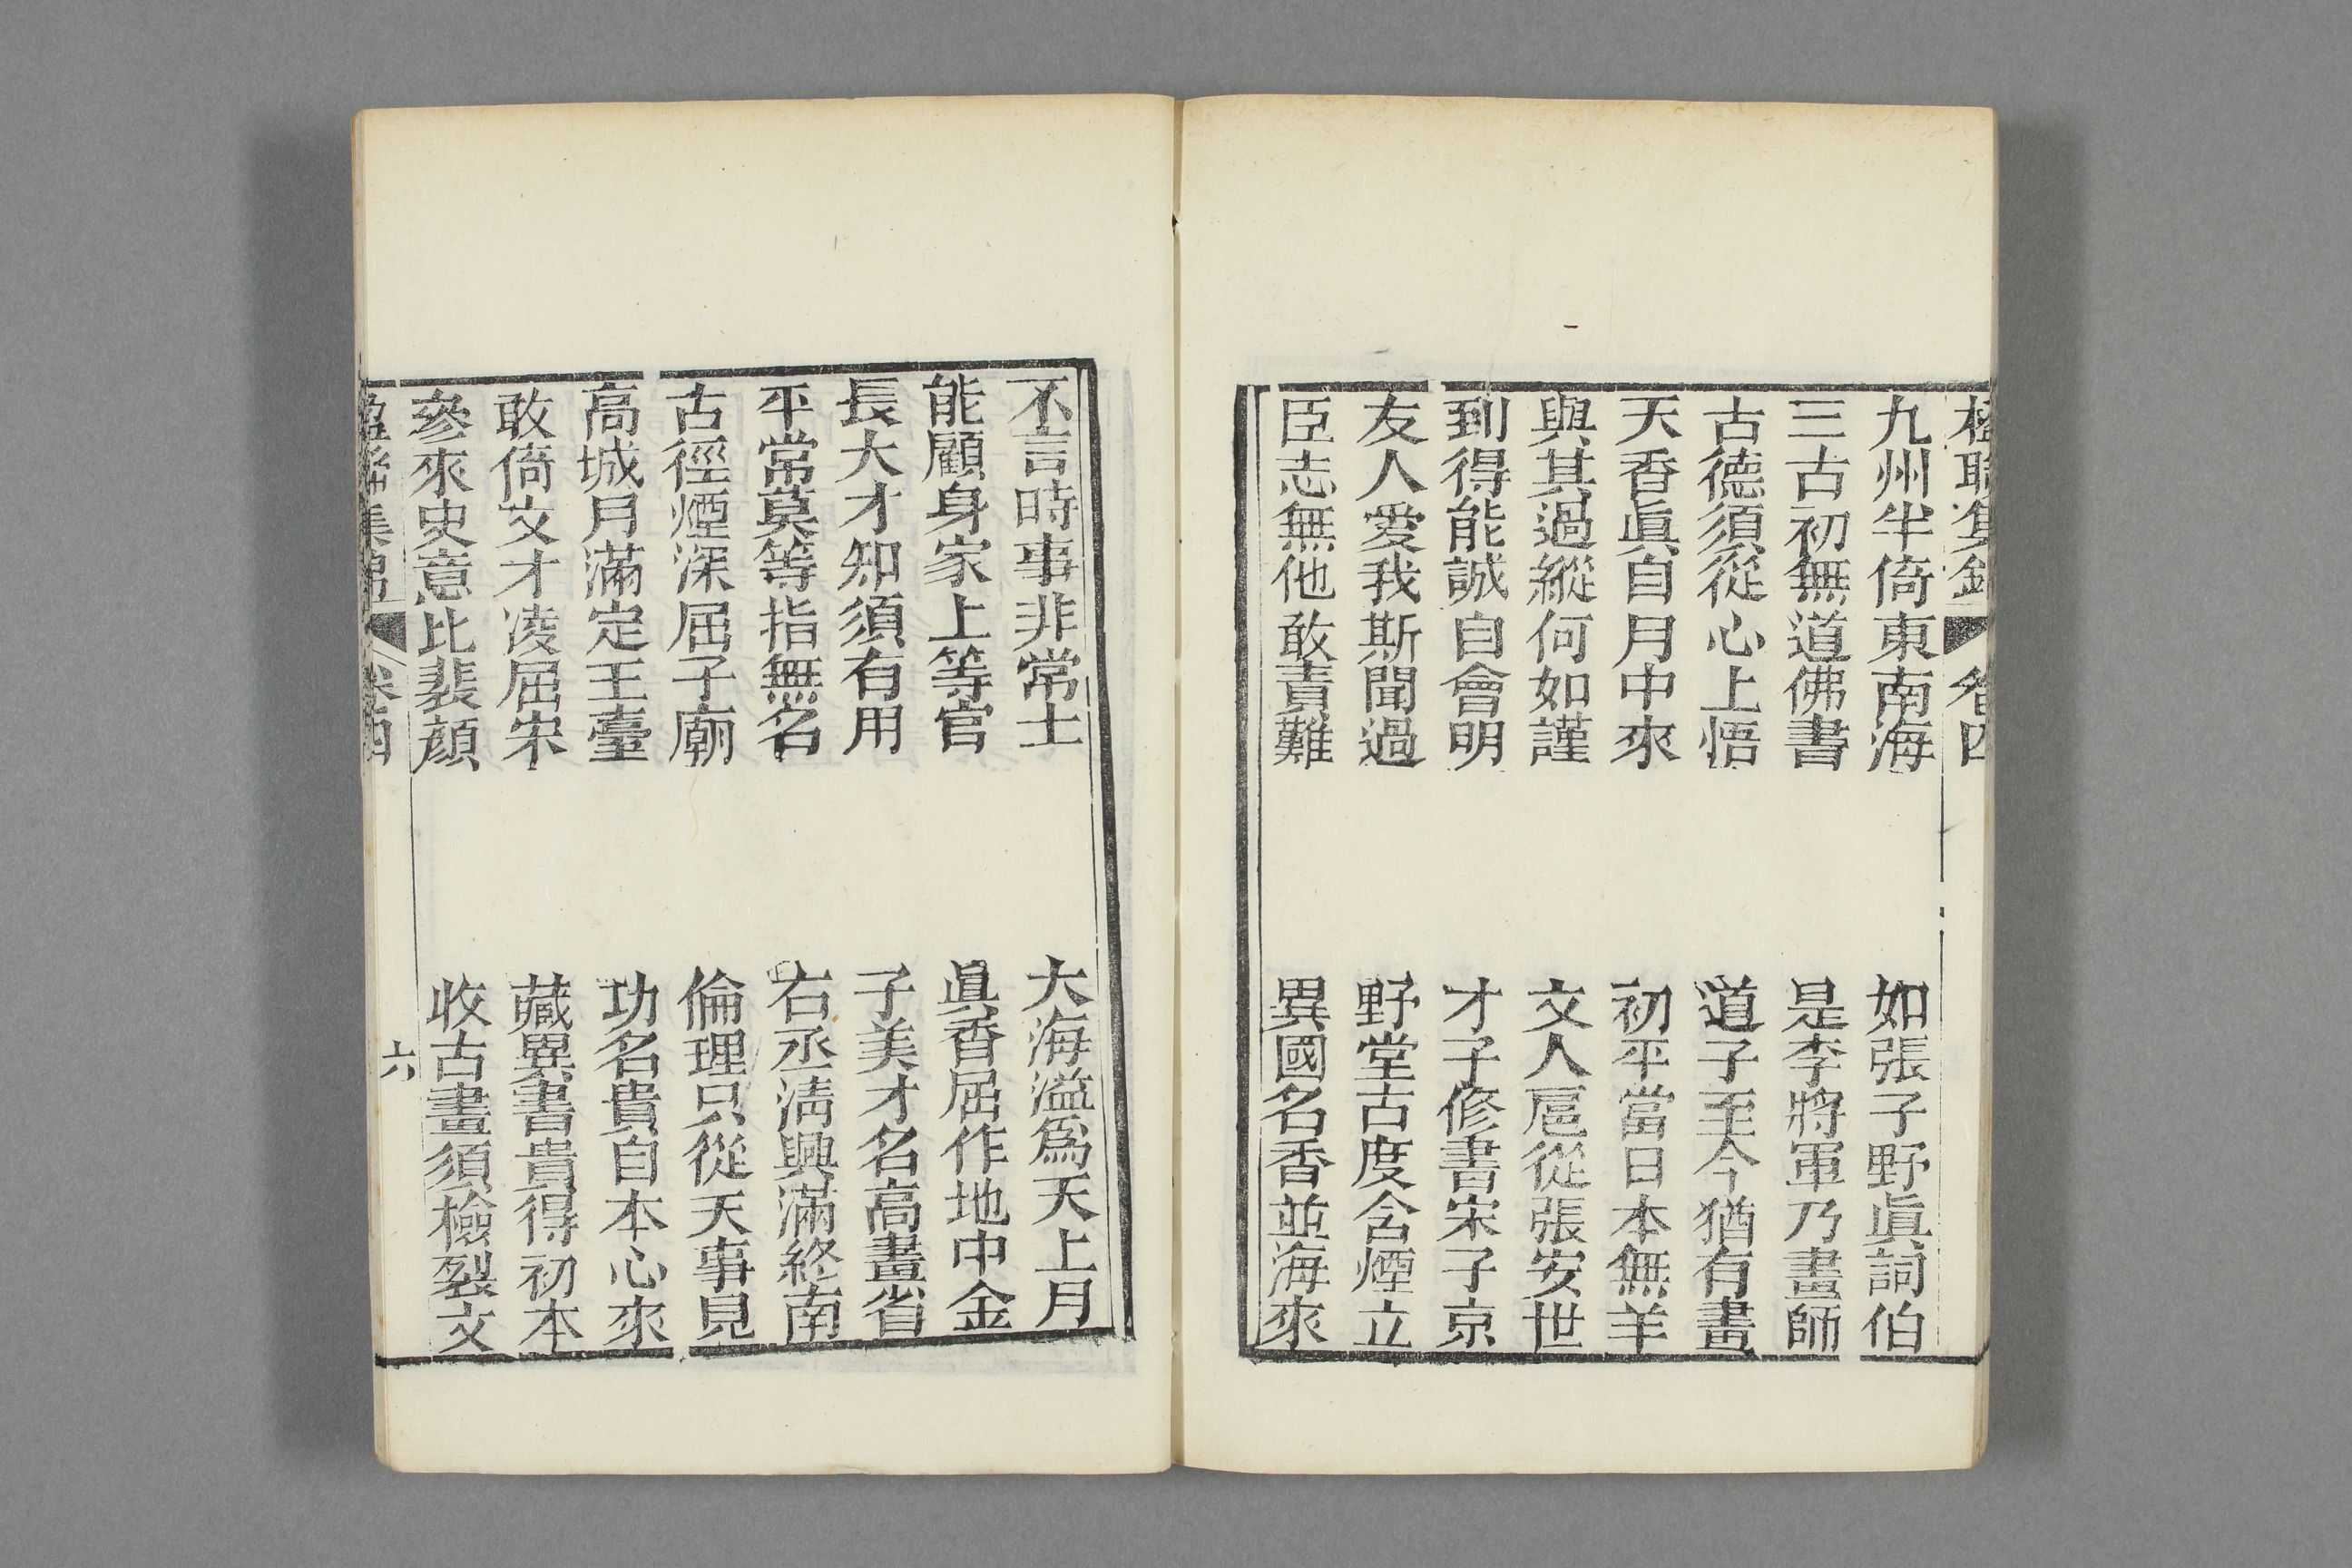 楹聯集錦 卷四
九州半倚東南海 如張子野眞詞伯
三古初無道佛書 是李將軍乃畫師
古德須從心上悟 道子至今猶有畫
天香眞自月中來 初平當日本無羊
與其過縱何如謹 文人扈從張安世
到得能誠自會明 才子修書宋子京
友人愛我斯聞過 野堂古度含煙立
臣志無他敢責難 異國名香並海來
不言時事非常士 大海溢爲天上月
能顧身家上等官 眞香屈作地中金
長大才知須有用 子美才名高畫省
平常莫等指無名 右丞淸興滿終南
古徑煙深屈子廟 倫理只從天事見
高城月滿定王臺 功名貴自本心來
敢倚文才凌屈宋 藏異書貴得初本
參來史意比裴顔 收古畫須檢裂文
楹聯集錦 卷四 六